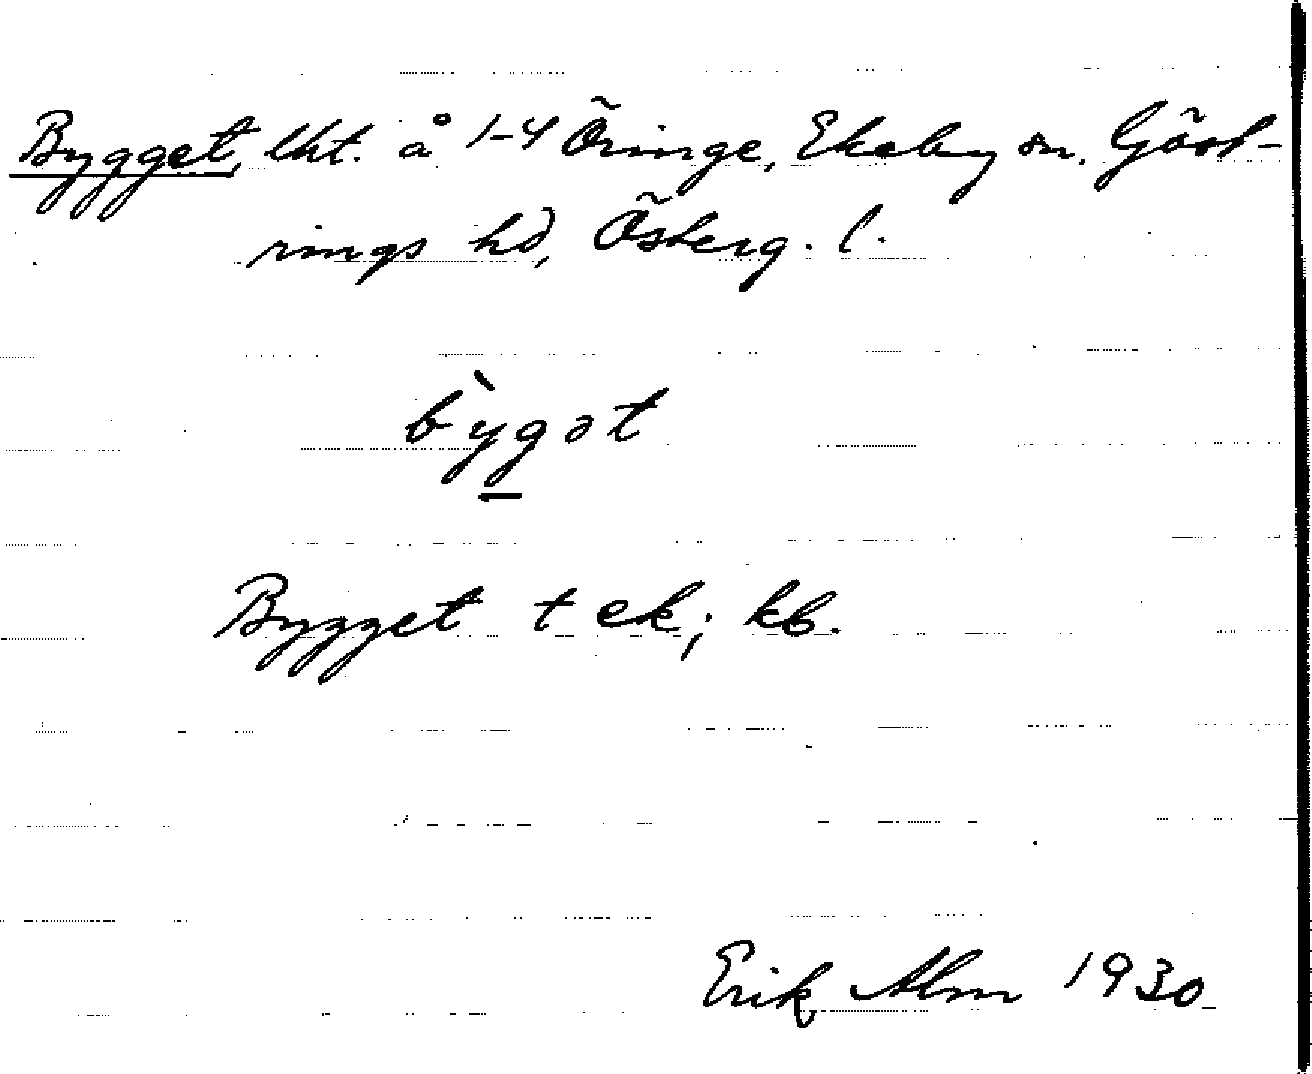 Bygget, lht. å 1-4 Öringe, Ekeby sn. Göst-
rings hd, Österg. l.
bỳgət
Bygget t ek; kb.
Erik Alm 1930